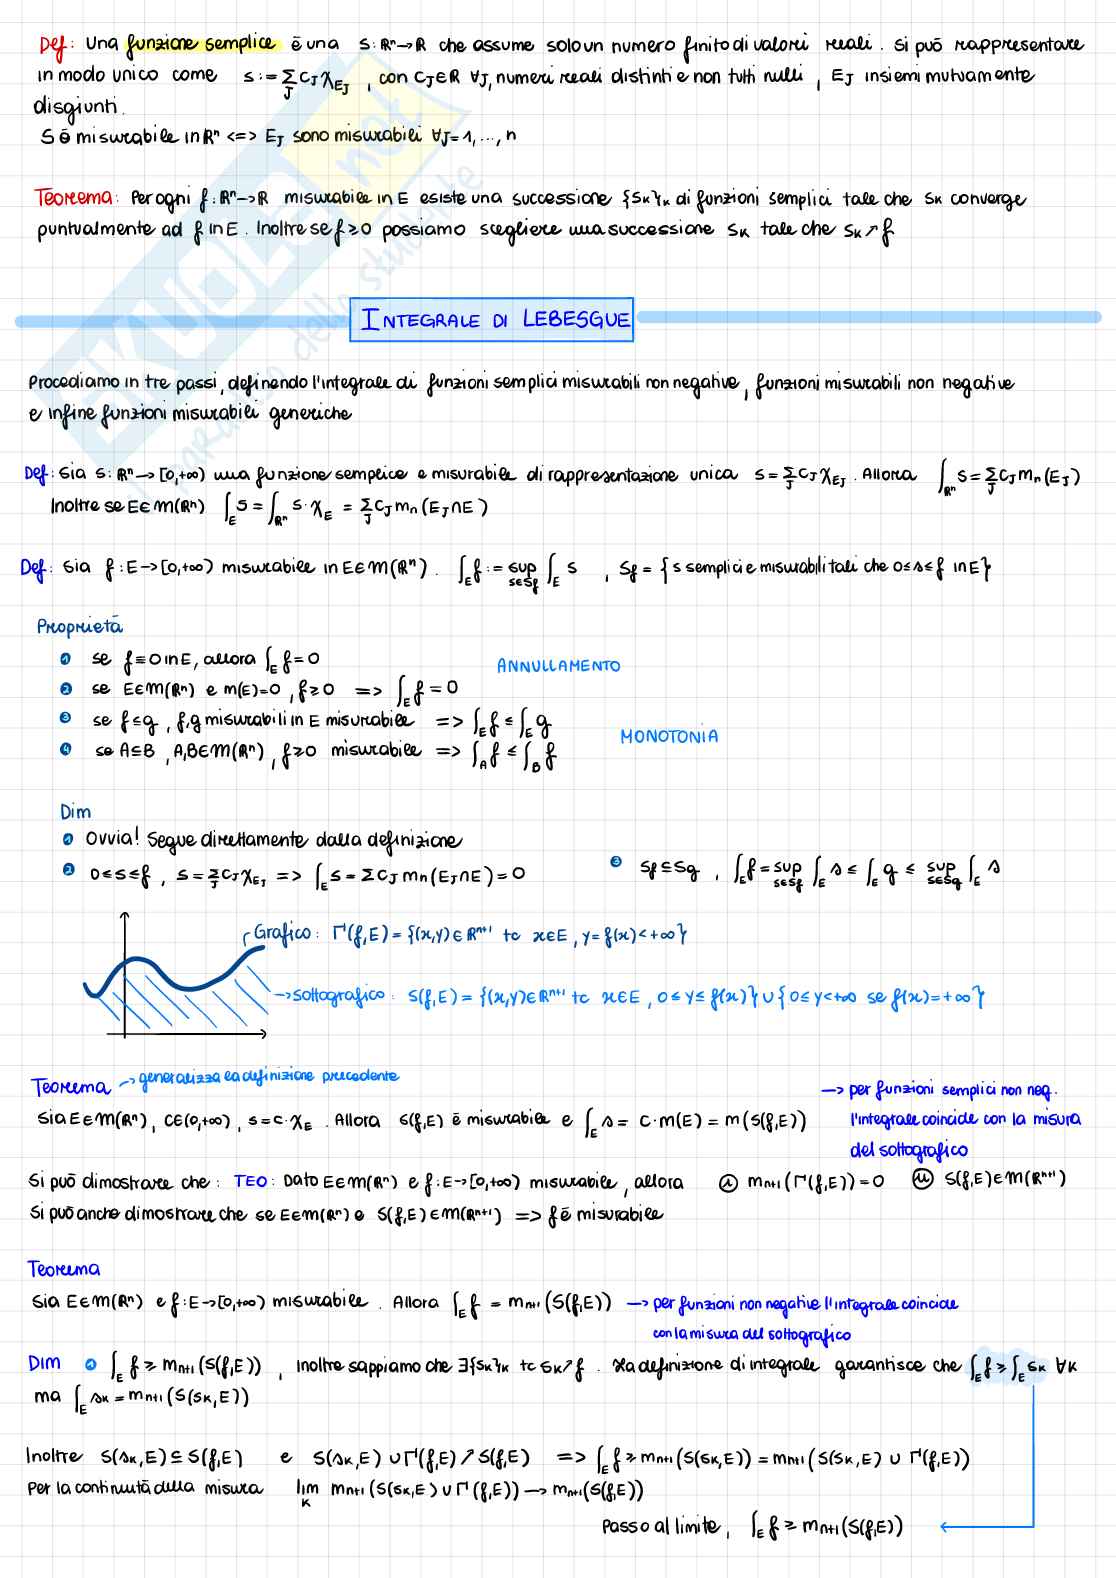 Def: Una funzione semplice è una s: ℝⁿ→ℝ che assume solo un numero finito di valori reali. Si può rappresentare
in modo unico come s := Σ_J C_J χ_{E_J} , con C_J∈ℝ ∀J, numeri reali distinti e non tutti nulli , E_J insiemi mutuamente
disgiunti.
S è misurabile in ℝⁿ <=> E_J sono misurabili ∀J=1,...,n
Teorema: Per ogni f: ℝⁿ→ℝ misurabile in E esiste una successione {S_K}_K di funzioni semplici tale che S_K converge
puntualmente ad f in E. Inoltre se f≥0 possiamo scegliere una successione S_K tale che S_K ↗ f
INTEGRALE DI LEBESGUE
Procediamo in tre passi, definendo l'integrale di funzioni semplici misurabili non negative, funzioni misurabili non negative
e infine funzioni misurabili generiche
Def: Sia S: ℝⁿ→[0,+∞) una funzione semplice e misurabile di rappresentazione unica S = Σ_J C_J χ_{E_J}. Allora ∫_{ℝⁿ} S = Σ_J C_J m_n(E_J)
Inoltre se E∈M(ℝⁿ) ∫_E S = ∫_{ℝⁿ} S·χ_E = Σ_J C_J m_n(E_J∩E)
Def: Sia f: E→[0,+∞) misurabile in E∈M(ℝⁿ). ∫_E f := sup_{s∈S_f} ∫_E s , S_f = {s semplici e misurabili tali che 0≤s≤f in E}
Proprietà
1 se f≡0 in E, allora ∫_E f=0
ANNULLAMENTO
2 se E∈M(ℝⁿ) e m(E)=0 , f≥0 => ∫_E f=0
3 se f≤g , f,g misurabili in E misurabile => ∫_E f ≤ ∫_E g
MONOTONIA
4 se A⊆B , A,B∈M(ℝⁿ) , f≥0 misurabile => ∫_A f ≤ ∫_B f
Dim
1 Ovvia! Segue direttamente dalla definizione
2 0≤s≤f , s=Σ_J C_J χ_{E_J} => ∫_E s = Σ C_J m_n(E_J∩E)=0
3 S_f⊆S_g , ∫_E f = sup_{s∈S_f} ∫_E s ≤ ∫_E g ≤ sup_{s∈S_g} ∫_E s
Grafico: Γ(f,E) = {(x,y)∈ℝⁿ⁺¹ tc x∈E , y=f(x)<+∞}
→Sottografico: S(f,E) = {(x,y)∈ℝⁿ⁺¹ tc x∈E , 0≤y≤f(x)} ∪ {0≤y<+∞ se f(x)=+∞}
Teorema → generalizza la definizione precedente
Sia E∈M(ℝⁿ), C∈(0,+∞) , s=C·χ_E . Allora S(f,E) è misurabile e ∫_E s = C·m(E) = m(S(f,E))
→ per funzioni semplici non neg.
l'integrale coincide con la misura
del sottografico
Si può dimostrare che: TEO: Dato E∈M(ℝⁿ) e f: E→[0,+∞) misurabile, allora (i) m_{n+1}(Γ(f,E))=0 (ii) S(f,E)∈M(ℝⁿ⁺¹)
Si può anche dimostrare che se E∈M(ℝⁿ) e S(f,E)∈M(ℝⁿ⁺¹) => f è misurabile
Teorema
Sia E∈M(ℝⁿ) e f: E→[0,+∞) misurabile. Allora ∫_E f = m_{n+1}(S(f,E)) → per funzioni non negative l'integrale coincide
con la misura del sottografico
DIM 1 ∫_E f ≥ m_{n+1}(S(f,E)) , inoltre sappiamo che ∃{S_K}_K tc S_K↗f . La definizione di integrale garantisce che ∫_E f ≥ ∫_E S_K ∀K
ma ∫_E s_K = m_{n+1}(S(S_K,E))
Inoltre S(s_K,E) ⊆ S(f,E) e S(s_K,E) ∪ Γ(f,E) ↗ S(f,E) => ∫_E f ≥ m_{n+1}(S(S_K,E)) = m_{n+1}(S(S_K,E) ∪ Γ(f,E))
Per la continuità della misura lim_K m_{n+1}(S(S_K,E) ∪ Γ(f,E)) → m_{n+1}(S(f,E))
Passo al limite, ∫_E f ≥ m_{n+1}(S(f,E))